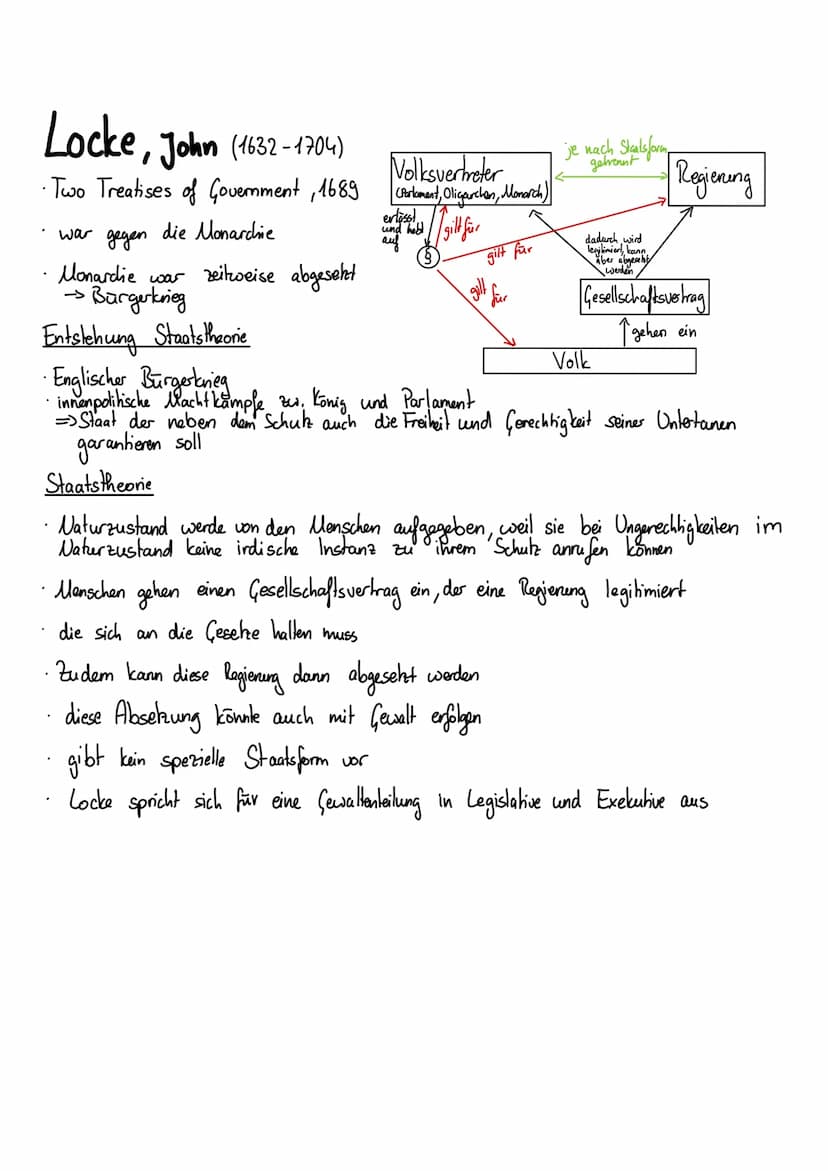 Locke, John (1632-1704)
· Two Treatises of Government, 1689
· war gegen die Monarchie
· Monarchie war zeitweise abgesetzt
→ Bürgerkrieg
Volksvertreter
(Parlament, Oligarchen, Monarch)
je nach Staatsform
getrennt
Regierung
erlässt
und hebt
auf
gilt für
§
gilt für
gilt für
dadurch wird
legitimiert, kann
aber abgesetzt
werden
Gesellschaftsvertrag
gehen ein
Volk
Entstehung Staatstheorie
· Englischer Bürgerkrieg
· innenpolitische Machtkämpfe zw. König und Parlament
⇒ Staat der neben dem Schutz auch die Freiheit und Gerechtigkeit seiner Untertanen
garantieren soll
Staatstheorie
· Naturzustand werde von den Menschen aufgegeben, weil sie bei Ungerechtigkeiten im
Naturzustand keine irdische Instanz zu ihrem Schutz anrufen können
· Menschen gehen einen Gesellschaftsvertrag ein, der eine Regierung legitimiert
· die sich an die Gesetze halten muss
· Zudem kann diese Regierung dann abgesetzt werden
· diese Absetzung könnte auch mit Gewalt erfolgen
· gibt kein spezielle Staatsform vor
· Locke spricht sich für eine Gewaltenteilung in Legislative und Exekutive aus